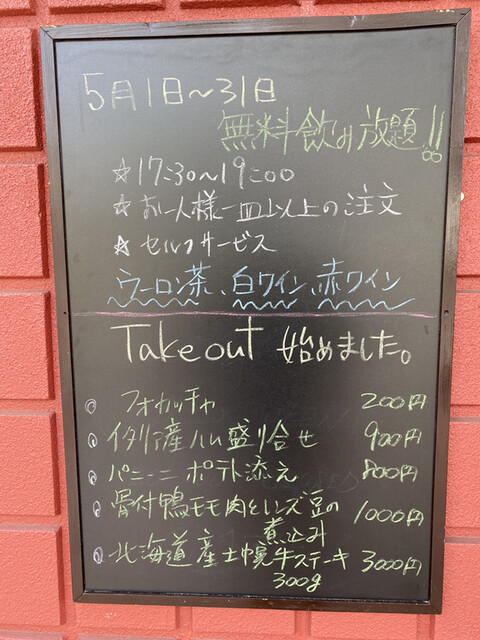 5月1日〜31日
無料飲み放題!!
☆17:30〜19:00
☆お一人様一皿以上の注文
☆セルフサービス
ウーロン茶、白ワイン、赤ワイン
Takeout 始めました。
フォカッチャ 200円
イタリア産ハム盛り合せ 900円
パニーニ ポテト添え 800円
骨付鴨モモ肉とレンズ豆の 1000円
煮込み
北海道産士幌牛ステーキ 3000円
300g